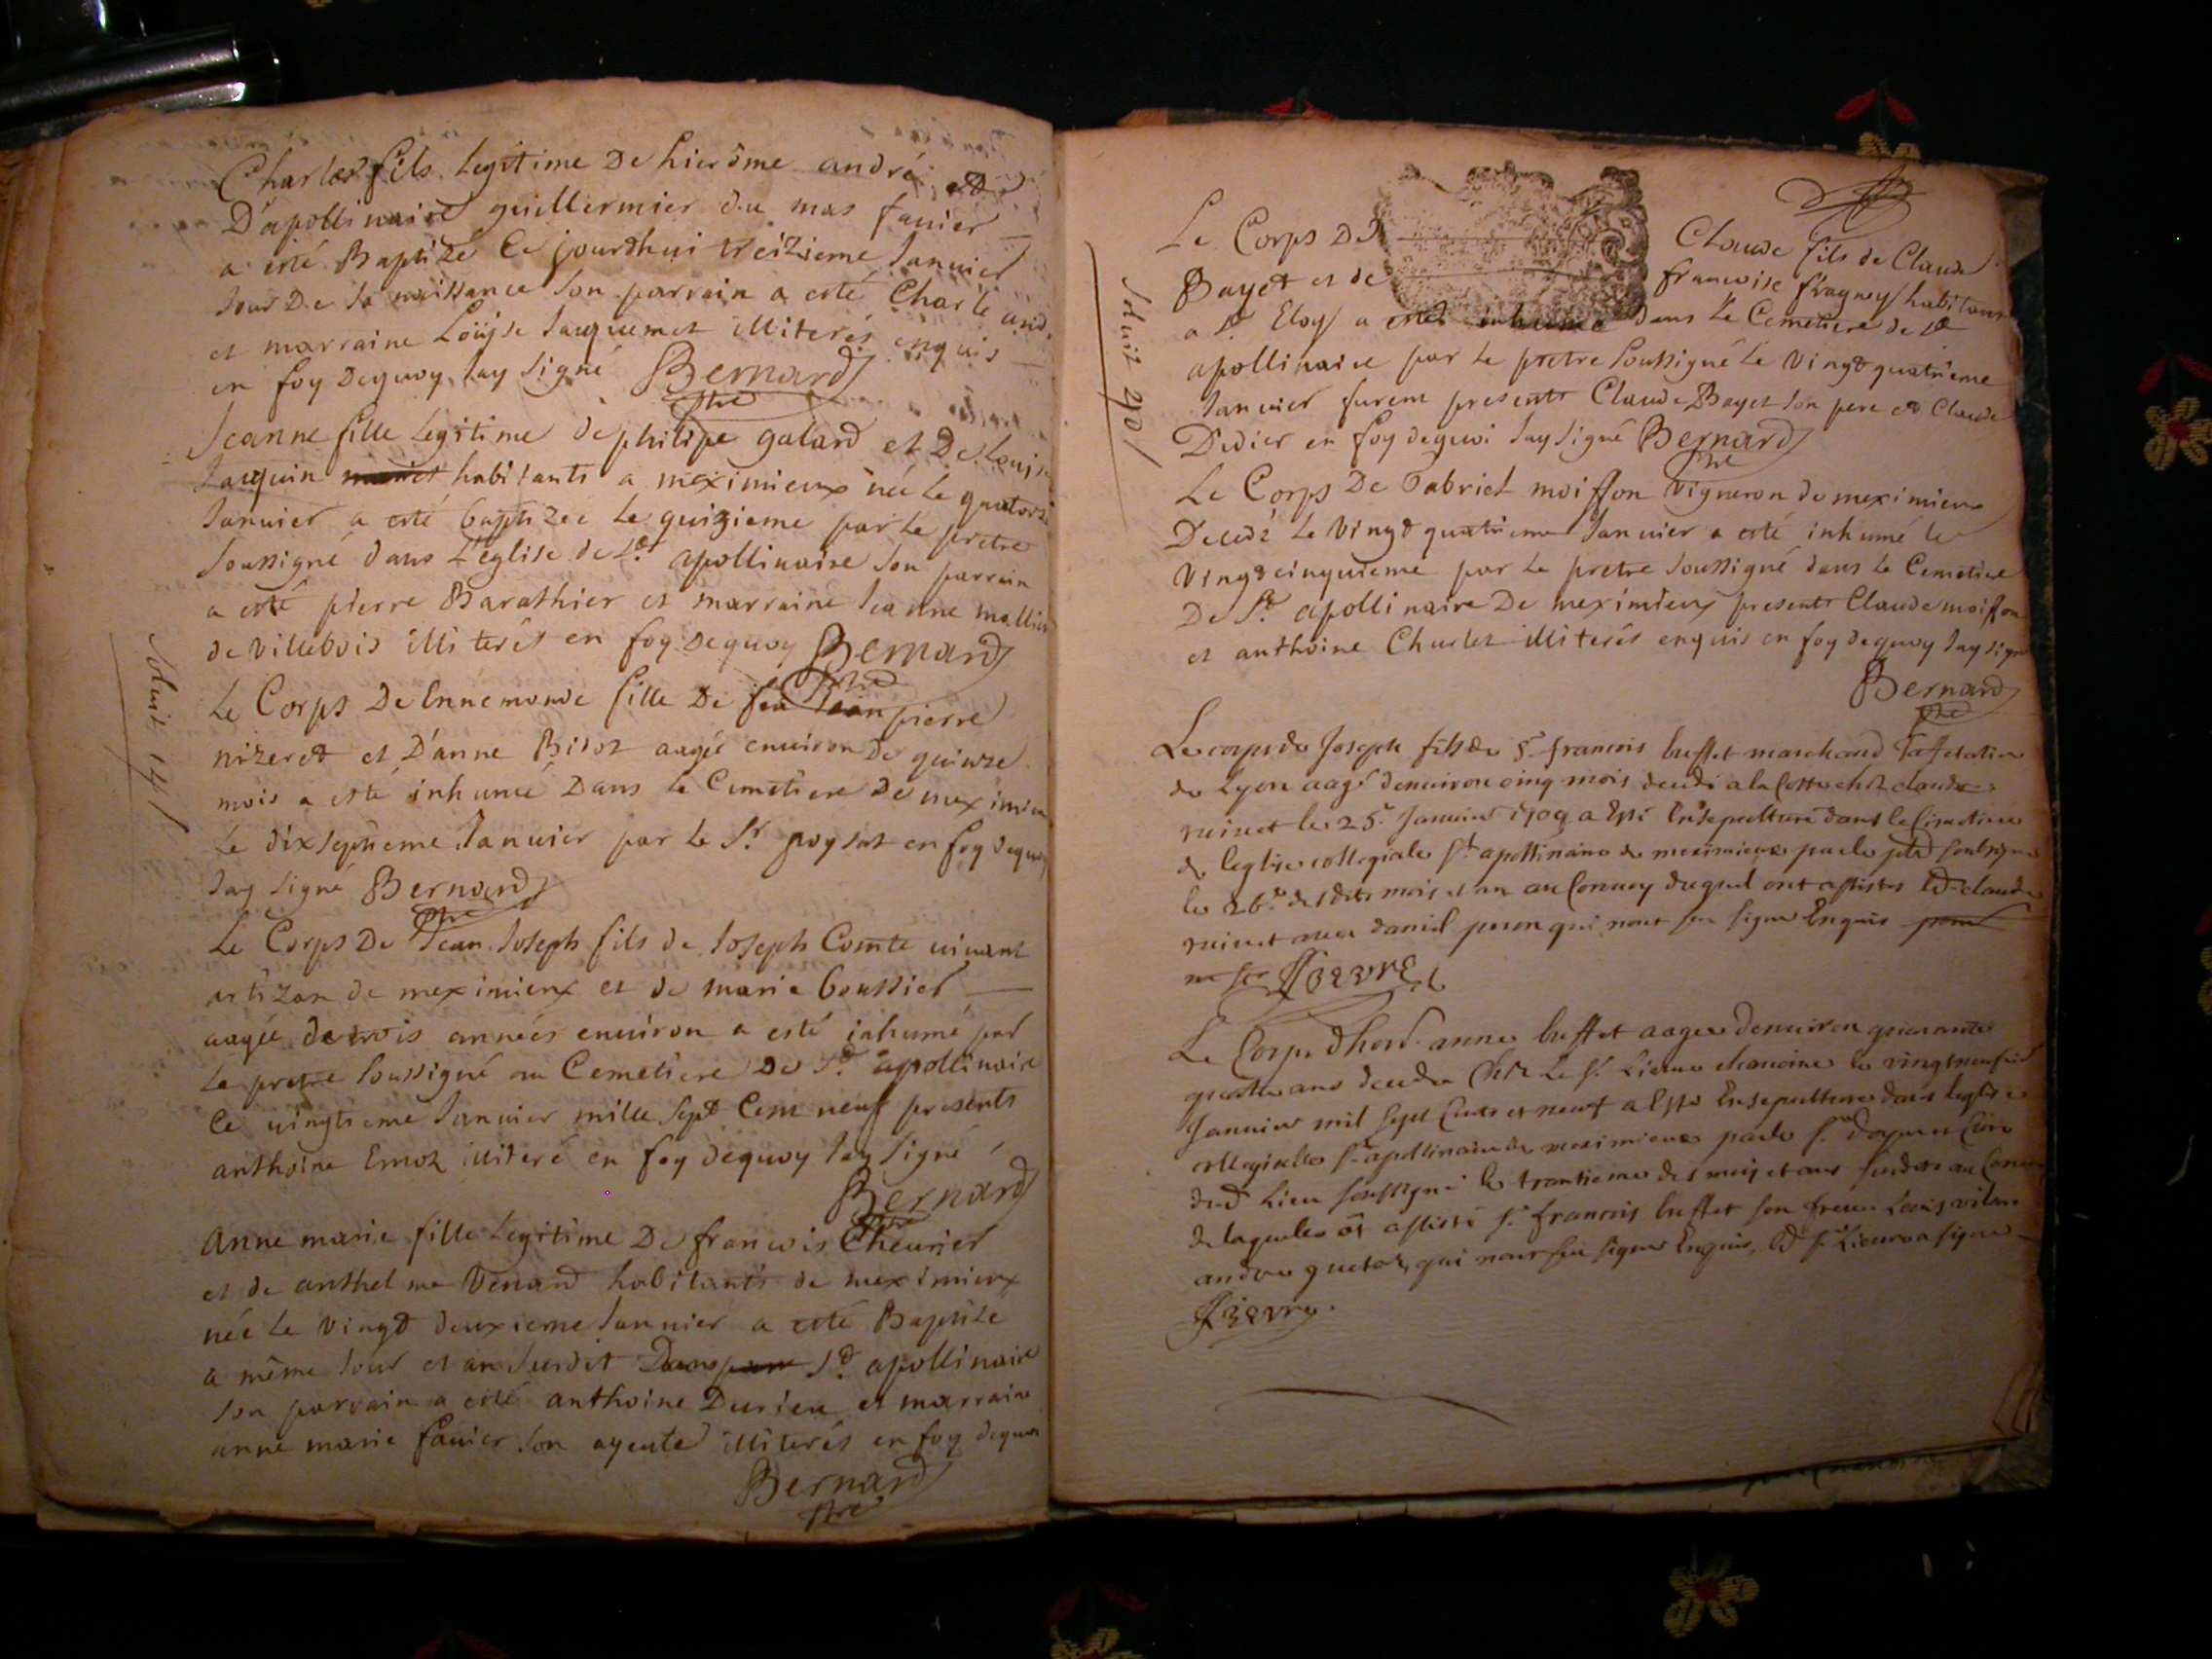 Charles fils legitime De hierôme andré et
D'apollinaire guillermier du mas favier
a esté Baptizé Ce jourdhui treizieme Janvier
Jour De sa naissance son parrain a esté Charle and
et marraine Loüise Jacquemet illiterés enquis
en foy Dequoy Jay signé Bernard
ptre
Jeanne fille legitime de philipe galard et De Louise
Jacquin habitants a meximieux née le quatorze
Janvier a esté baptizée le quizieme par le pretre
soussigné dans L'église de St. apollinaire son parrain
a esté pierre Barathier et marraine Jeanne mallier
de villebois illiterés en foy Dequoy Bernard
ptre
solvit
Le Corps De Ennemonde fille De feu Jean pierre
nizeret et D'anne Bisot aagée environ De quinze
mois a esté inhumé Dans le Cimetiere de meximieu
le dixseptieme Janvier par le Sr. poysat en foy dequoy
Jay signé Bernard
ptre
Le Corps De Jean Joseph fils de Joseph Comte vivant
artizan de meximieux et de marie boussier
aagée de trois années environ a esté inhumé par
le pretre soussigné au Cemetiere De St. apollinaire
Ce vingtieme Janvier mille sept Cent neuf presents
anthoine Emoz illiteré en foy dequoy Jay signé
Bernard
ptre
Anne marie fille legitime De francois Chevrier
et de anthelme Venard habitants de meximieux
née le vingt deuxieme Janvier a esté Baptizé
a même Jour et an susdit Dans St. apollinaire
son parrain a esté anthoine Durieu et marraine
anne marie favier son ayeule illiterés en foy dequoy
Bernard
ptre
Le Corps De Claude fils de Claude
Bayet et de francoise fragney habitans
a St. Eloy a esté inhumé dans le Cemetiere de St
apollinaire par le pretre soussigné le vingt quatrieme
Janvier furent presents Claude Bayet son pere et Claude
Didier en foy dequoi Jay signé Bernard
ptre
solvit
Le Corps De Gabriel moisson vigneron de meximieu
Decedé le vingt quatrieme Janvier a esté inhumé le
vingt cinquieme par le pretre soussigné dans le Cemetiere
De St. apollinaire De meximieux presents Claude moisson
et anthoine Charlet illiterés enquis en foy dequoy Jay signé
Bernard
ptre
Le corps de Joseph fils de Sr. francois buffet marchand Taffetatier
de Lyon aagé denviron cinq mois decedé a la Cotte chez claude
ruivet le 25e. Janvier 1709 a Esté Ensepulturé dans le Cimetiere
de leglise collegiale St apollinaire de meximieux par le ptre soubsigné
le 26e. desdits mois et an au Convoy duquel ont assistes led. claude
ruivet avec daniel qui nont sceu signer Enquis
Lievre
Le Corps dhon. anne buffet aagee denviron quarante
quatre ans decedee Chez Le Sr. Lievre chanoine le vingtneufvie
Janvier mil sept Cents et neuf a Esté Ensepulturee dans leglise
collegialle St apollinaire de meximieux par le Sr. doyen et Curé
dud. Lieu soussigné le trantieme des mois et an susdits au Convoy
de laquelle ont assisté Sr. francois buffet son frere Louis
andre qui nont sceu signer Enquis, led. Sr. Lievre a signé
Lievre.